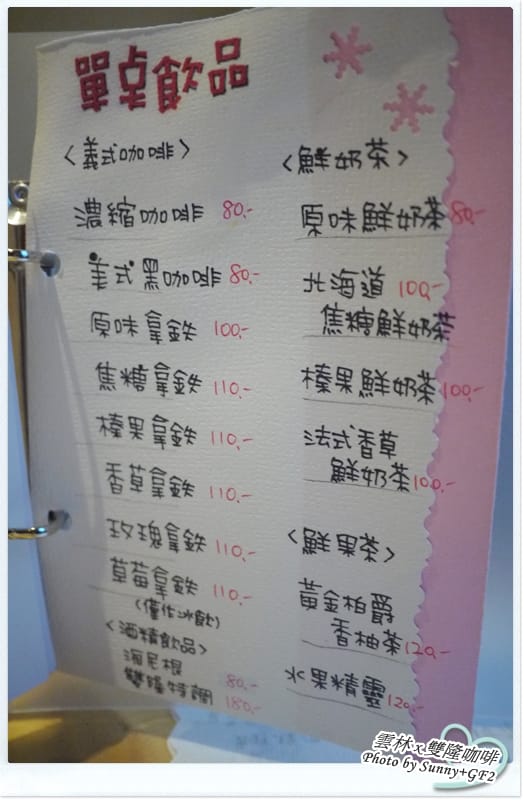 單点飲品
〈義式咖啡〉
濃縮咖啡 80.-
美式黑咖啡 80.-
原味拿鉄 100.-
焦糖拿鉄 110.-
榛果拿鉄 110.-
香草拿鉄 110.-
玫瑰拿鉄 110.-
草莓拿鉄 110.-
(僅作冰飲)
〈酒精飲品〉
海尼根 80.-
雙隆特調 180.-
〈鮮奶茶〉
原味鮮奶茶 80.-
北海道 100.-
焦糖鮮奶茶
榛果鮮奶茶 100.-
法式香草
鮮奶茶 100.-
〈鮮果茶〉
黃金柏爵
香柚茶 120.-
水果精靈 120.-
雲林x雙隆咖啡
Photo by Sunny+GF2